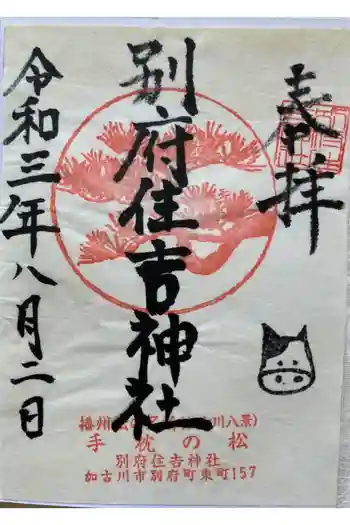 奉拝
別府住吉神社
令和三年八月二日
手枕の松
別府住吉神社
加古川市別府町東町157